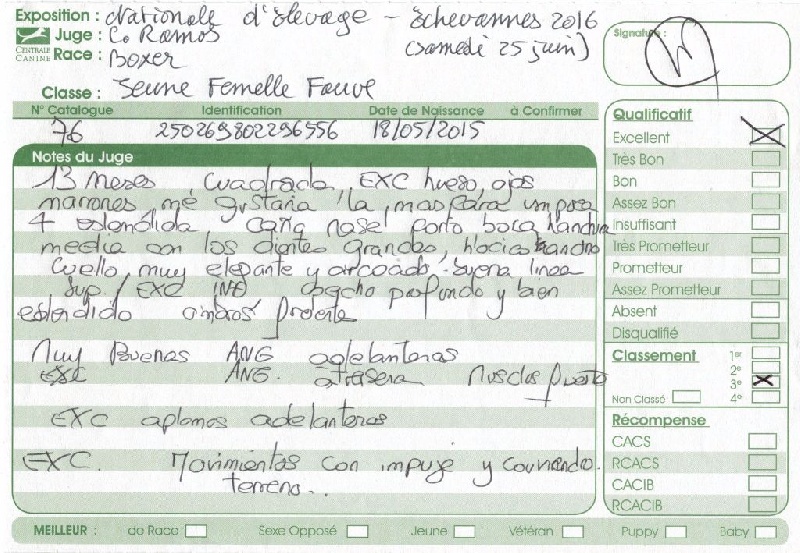 Exposition : Nationale d'Elevage - Echevannes 2016
Juge : Co Ramos (samedi 25 juin)
Signature :
CENTRALE CANINE
Race : Boxer
Classe : Jeune Femelle Fauve
N° Catalogue Identification Date de Naissance à Confirmer
76 250269802296556 18/05/2015
Notes du Juge
13 meses cuadrada, EXC hueso, ojos
marrones, me gustaria la mascara un poco
+ esplendida caña nasal boca
media con los dientes grandes, hocico
cuello, muy elegante y arqueado - buena linea
sup. / EXC INF pecho profundo y bien
Muy Buenas ANG adelanteras
EXC ANG. Muslos
EXC aplomos adelanteros
EXC. Movimientos con impuje y couvriendo
terreno..
Qualificatif
Excellent
Très Bon
Bon
Assez Bon
Insuffisant
Très Prometteur
Prometteur
Assez Prometteur
Absent
Disqualifié
Classement 1er
2e
3e
Non Classé 4e
Récompense
CACS
RCACS
CACIB
RCACIB
MEILLEUR : de Race Sexe Opposé Jeune Vétéran Puppy Baby